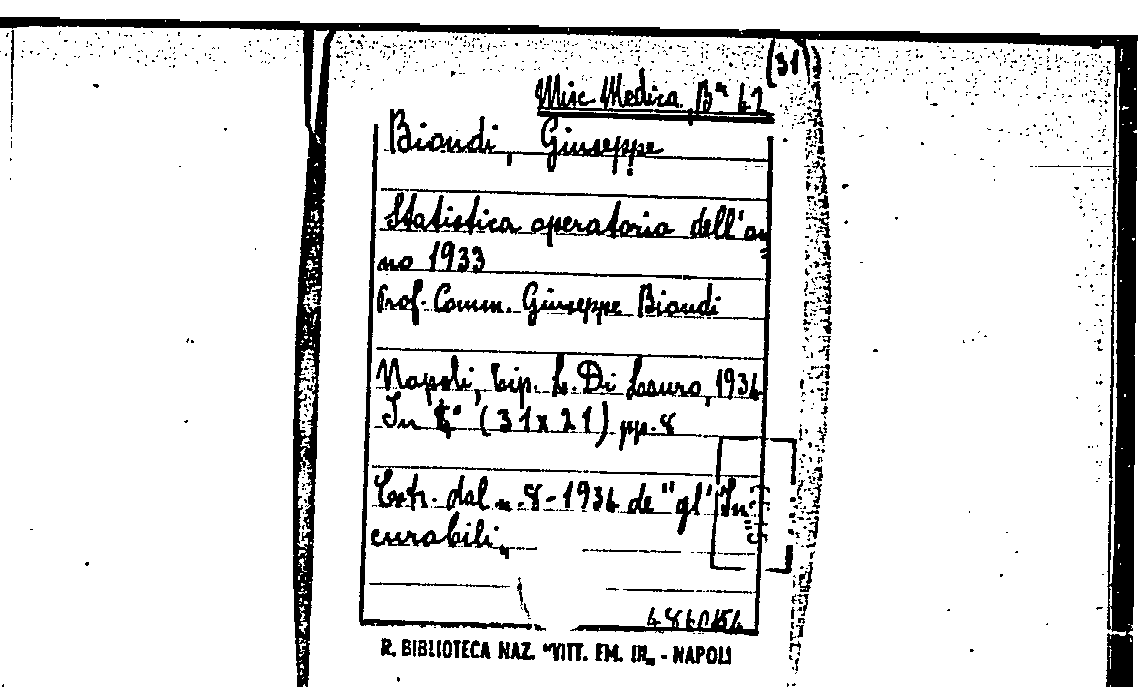 (31)
Misc. Medica B⁺ 42
Biondi, Giuseppe
Statistica operatoria dell'an
no 1933
Prof. Comm. Giuseppe Biondi
Napoli, Tip. L. Di Lauro, 1934
In 8° (31x21) pp. 8
Estr. dal n. 8 - 1934 de "gl' In
curabili„
R. BIBLIOTECA NAZ. "VITT. EM. III„ - NAPOLI